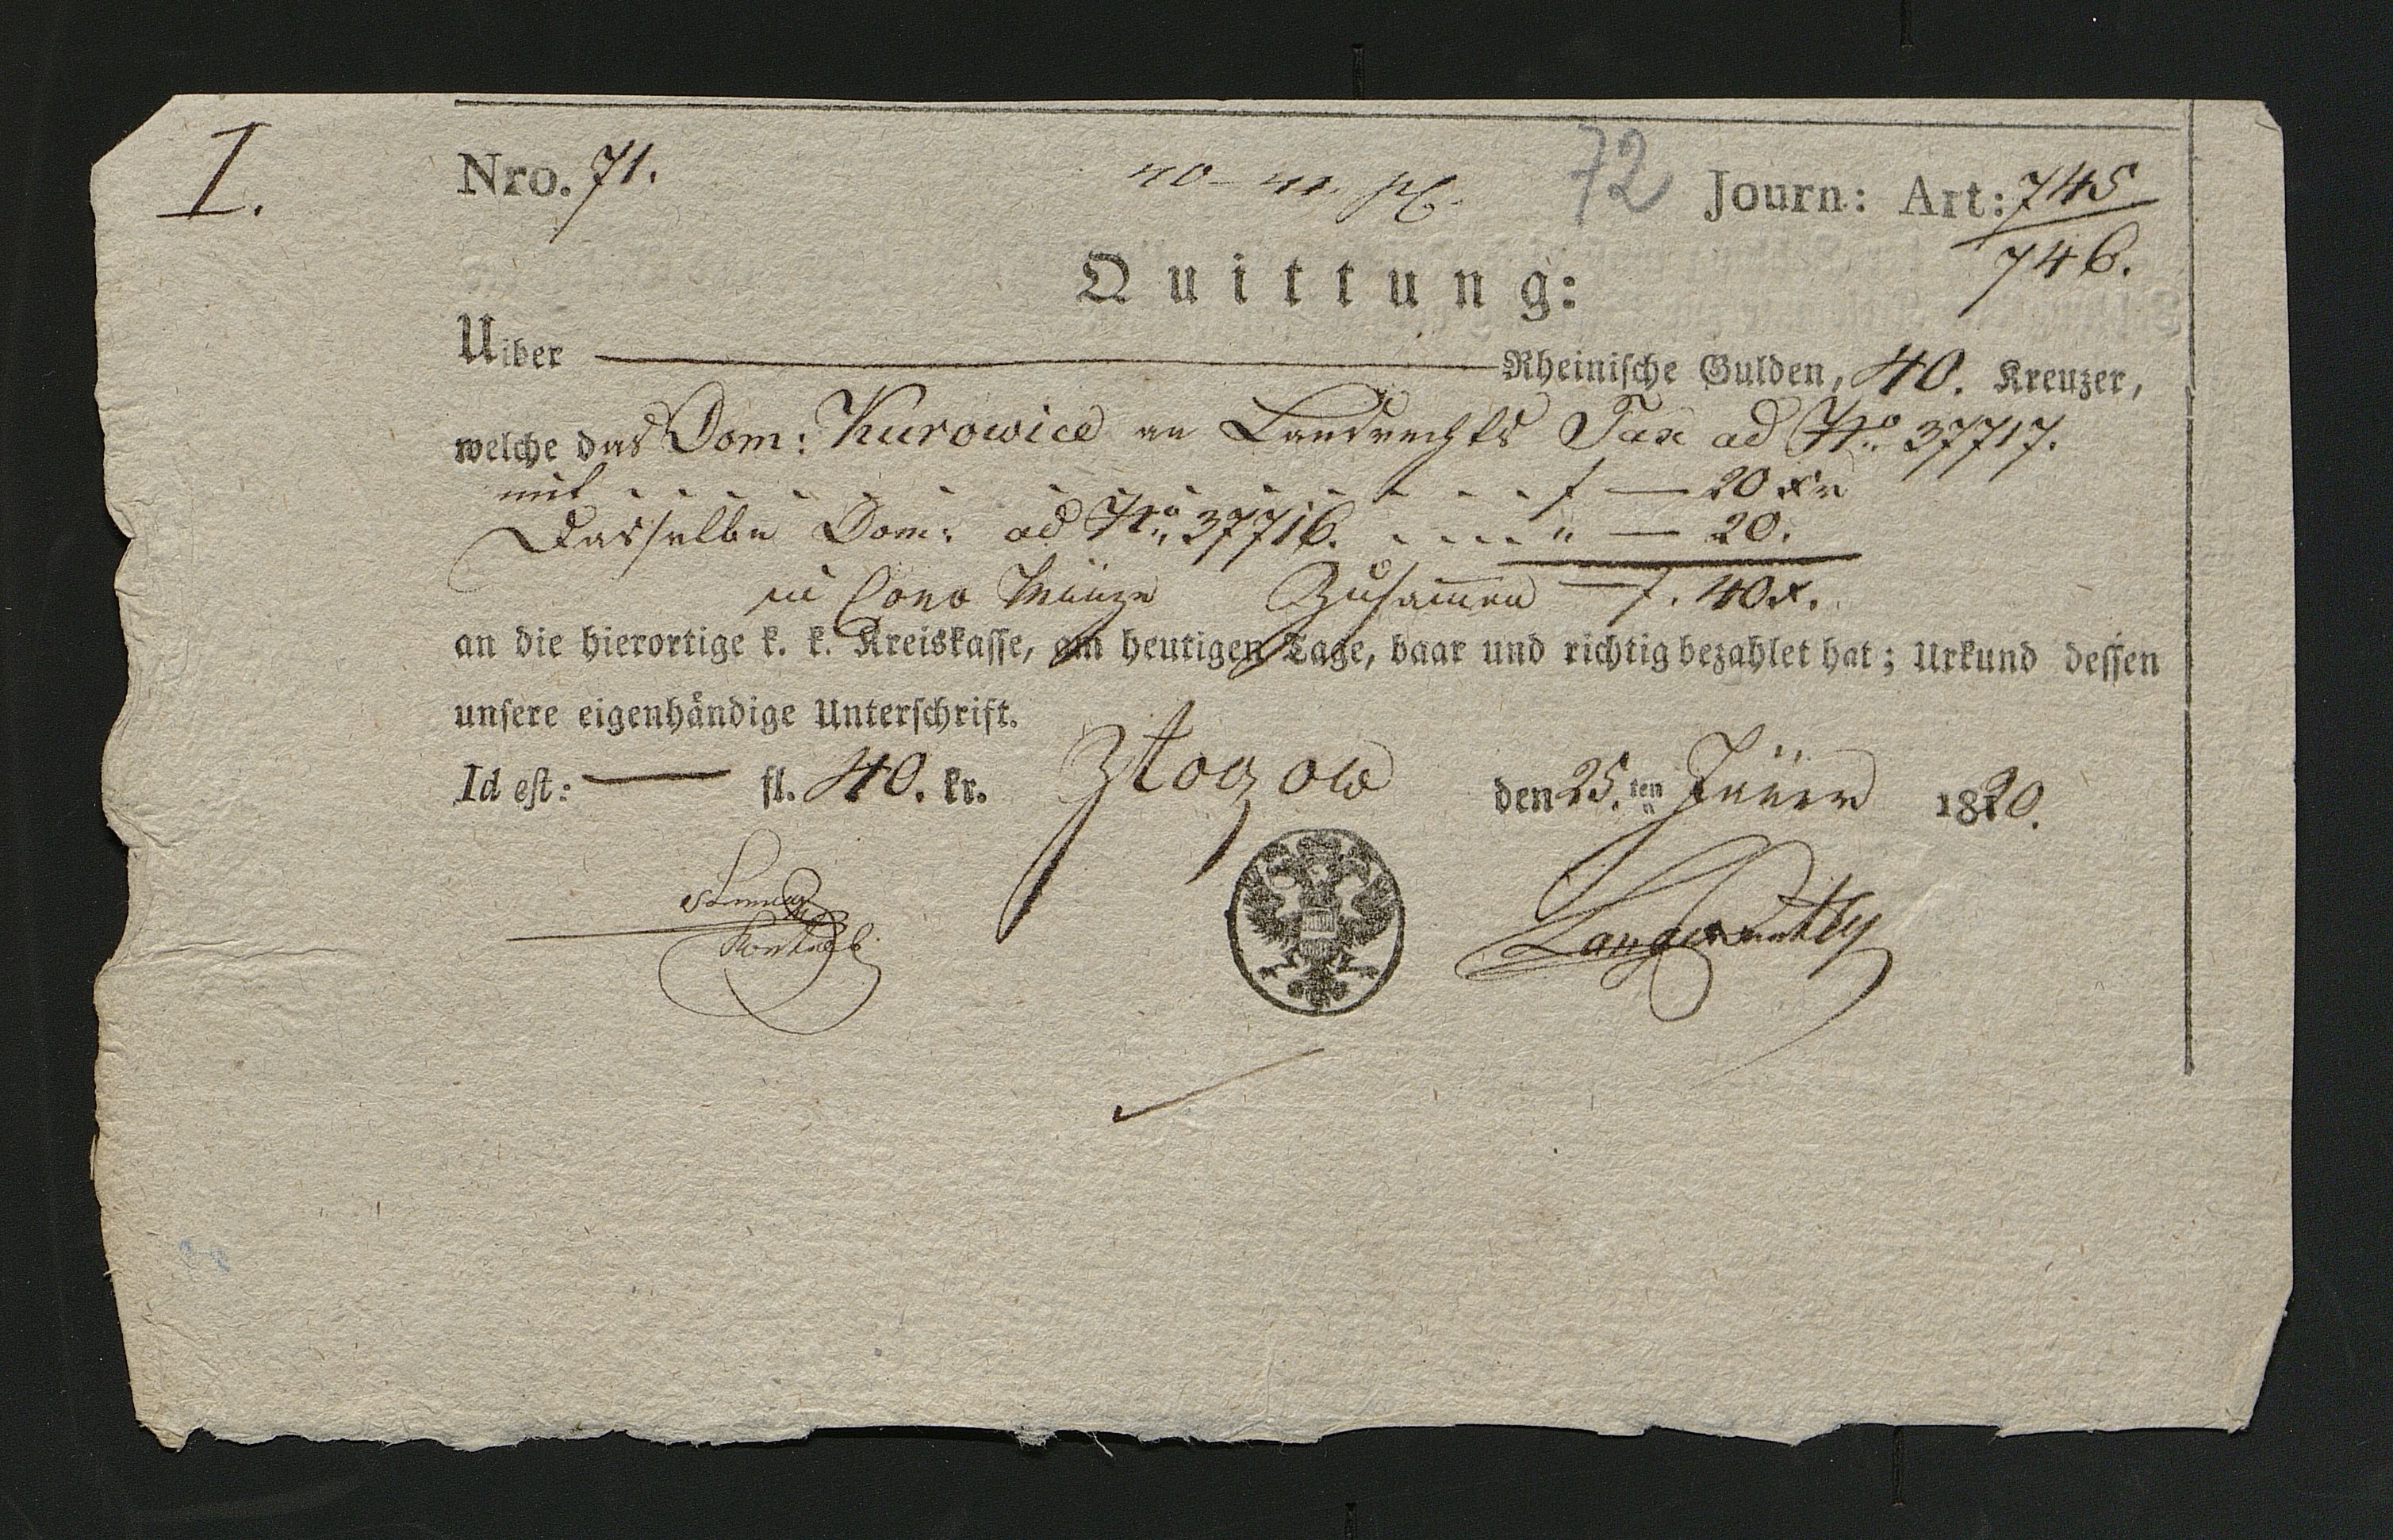 I.
Nro. 71.
72
Journ: Art: 745
746.
Quittung:
Uiber — Rheinische Gulden, 40. Kreuzer,
welche das Dom: Kurowice an Landrechts Tax ad No. 37717.
mit . . . . . . . . . . . . . . f — 20 xr
Dasselbe Dom: ad No. 37716. . . . . " — 20.
in Conv Münze Zusammen — f. 40 x.
an die hierortige k. k. Kreiskasse, am heutigen Tage, baar und richtig bezahlet hat; Urkund dessen
unsere eigenhändige Unterschrift.
Id est: — fl. 40. kr. Złoczow den 25. ten Jäner 1820.